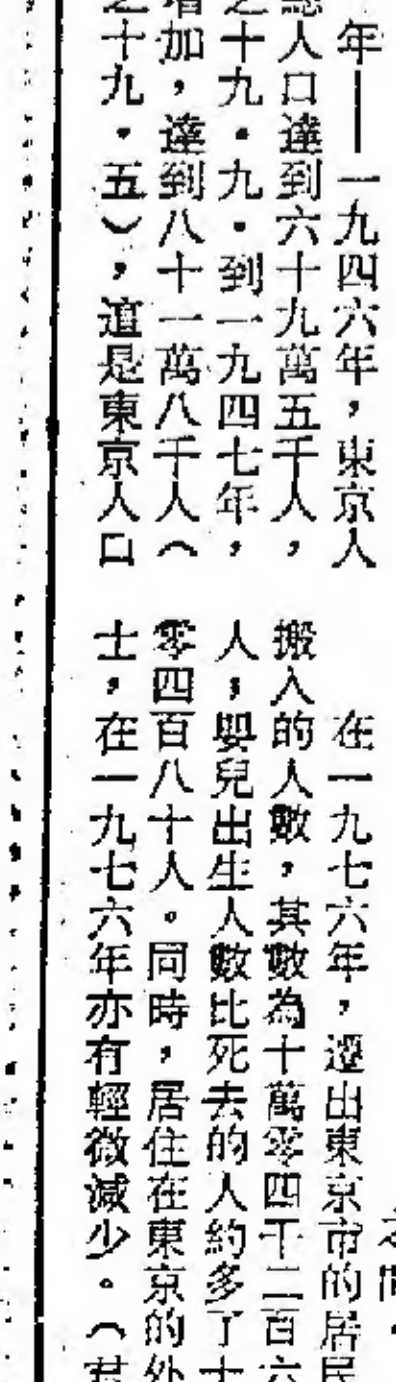 年——一九四六年，東京人
總人口達到六十九萬五千人，
之十九・九・到一九四七年，
增加，達到八十一萬八千人（
之十九・五），這是東京人口
之間，
在一九七六年，遷出東京市的居民
搬入的人數，其數為十萬零四千二百六
人；嬰兒出生人數比死去的人約多了十
零四百八十人。同時，居住在東京的外
士，在一九七六年亦有輕微減少。（君